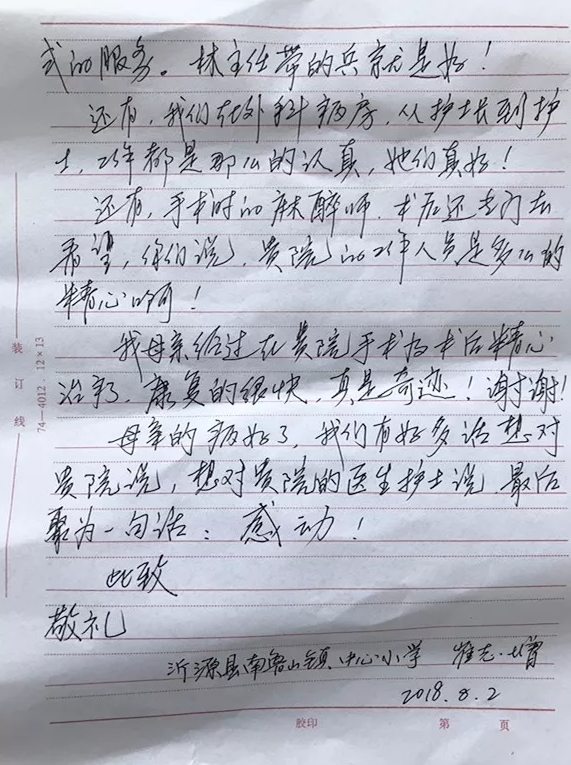 式的服务。林主任带的兵就是好！
还有，我们在外科病房，从护士长到护
士，工作都是那么的认真，她们真好！
还有，手术时的麻醉师，术后还专门去
看望，你们说，贵院的工作人员是多么的
精心啊！
我母亲经过在贵院手术及术后精心
治疗，康复的很快，真是奇迹！谢谢！
母亲的病好了，我们有好多话想对
贵院说，想对贵院的医生护士说，最后
聚为一句话：感动！
此致
敬礼
沂源县南鲁山镇中心小学
2018.8.2
装订线
74—4012．12×13
胶印 第 页